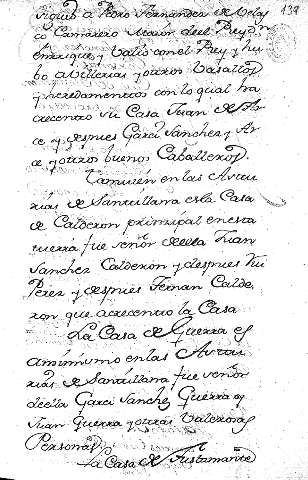 139
Siguió a Pedro Fernandez de Velas
co Camarero maior del Rey Dn.
Enrrique y Valio con el Rey y hu
bo a Villerias y otros Vasallos
y heredamientos con lo qual ha
crecento su Casa Juan de Ar
ce y despues Garci Sanchez y Ar
ce y otros buenos Caballeros
Tamvien en las Astu
rias de Santillana es la Casa
de Calderon principal en esta
tierra fue señor de ella Juan
Sanchez Calderon y despues Rui
Perez y despues Fernan Calde
ron que acrecento la Casa
La Casa de Guerra es
aminismo en las Astu
rias de Santillana fue señor
de ella Garci Sanchez Guerra y
Juan Guerra y otras Valerosas
Personas
La Casa de Bustamante